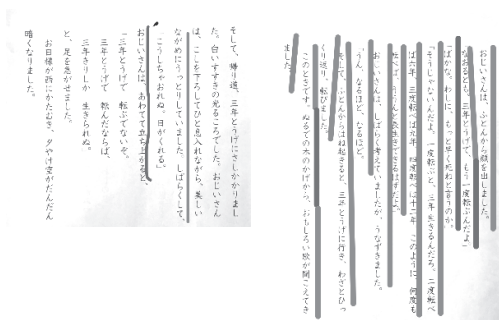 おじいさんは、ふとんから顔を出しました。
「なおるとも。三年とうげで、もう一度転ぶんだよ。」
「ばかな。わしに、もっと早く死ねと言うのか。」
「そうじゃないんだよ。一度転ぶと、三年生きるんだろ。二度転べ
ば六年、三度転べば九年、四度転べば十二年。このように、何度も
転べば、うんと長生きできるはずだよ。」
おじいさんは、しばらく考えていましたが、うなずきました。
「うん、なるほど、なるほど。」
そして、ふとんからはね起きると、三年とうげに行き、わざとひっ
くり返り、転びました。
このときです。ぬるでの木のかげから、おもしろい歌が聞こえてき
ました。
そして、帰り道、三年とうげにさしかかりまし
た。白いすすきの光るころでした。おじいさん
は、こしを下ろしてひと息入れながら、美しい
ながめにうっとりしていました。しばらくして、
「こうしちゃおれぬ。日がくれる。」
おじいさんは、あわてて立ち上がると、
「三年とうげで 転ぶでないぞ。
三年とうげで 転んだならば、
三年きりしか 生きられぬ。
と、足を急がせました。
お日様が西にかたむき、夕やけ空がだんだん
暗くなりました。